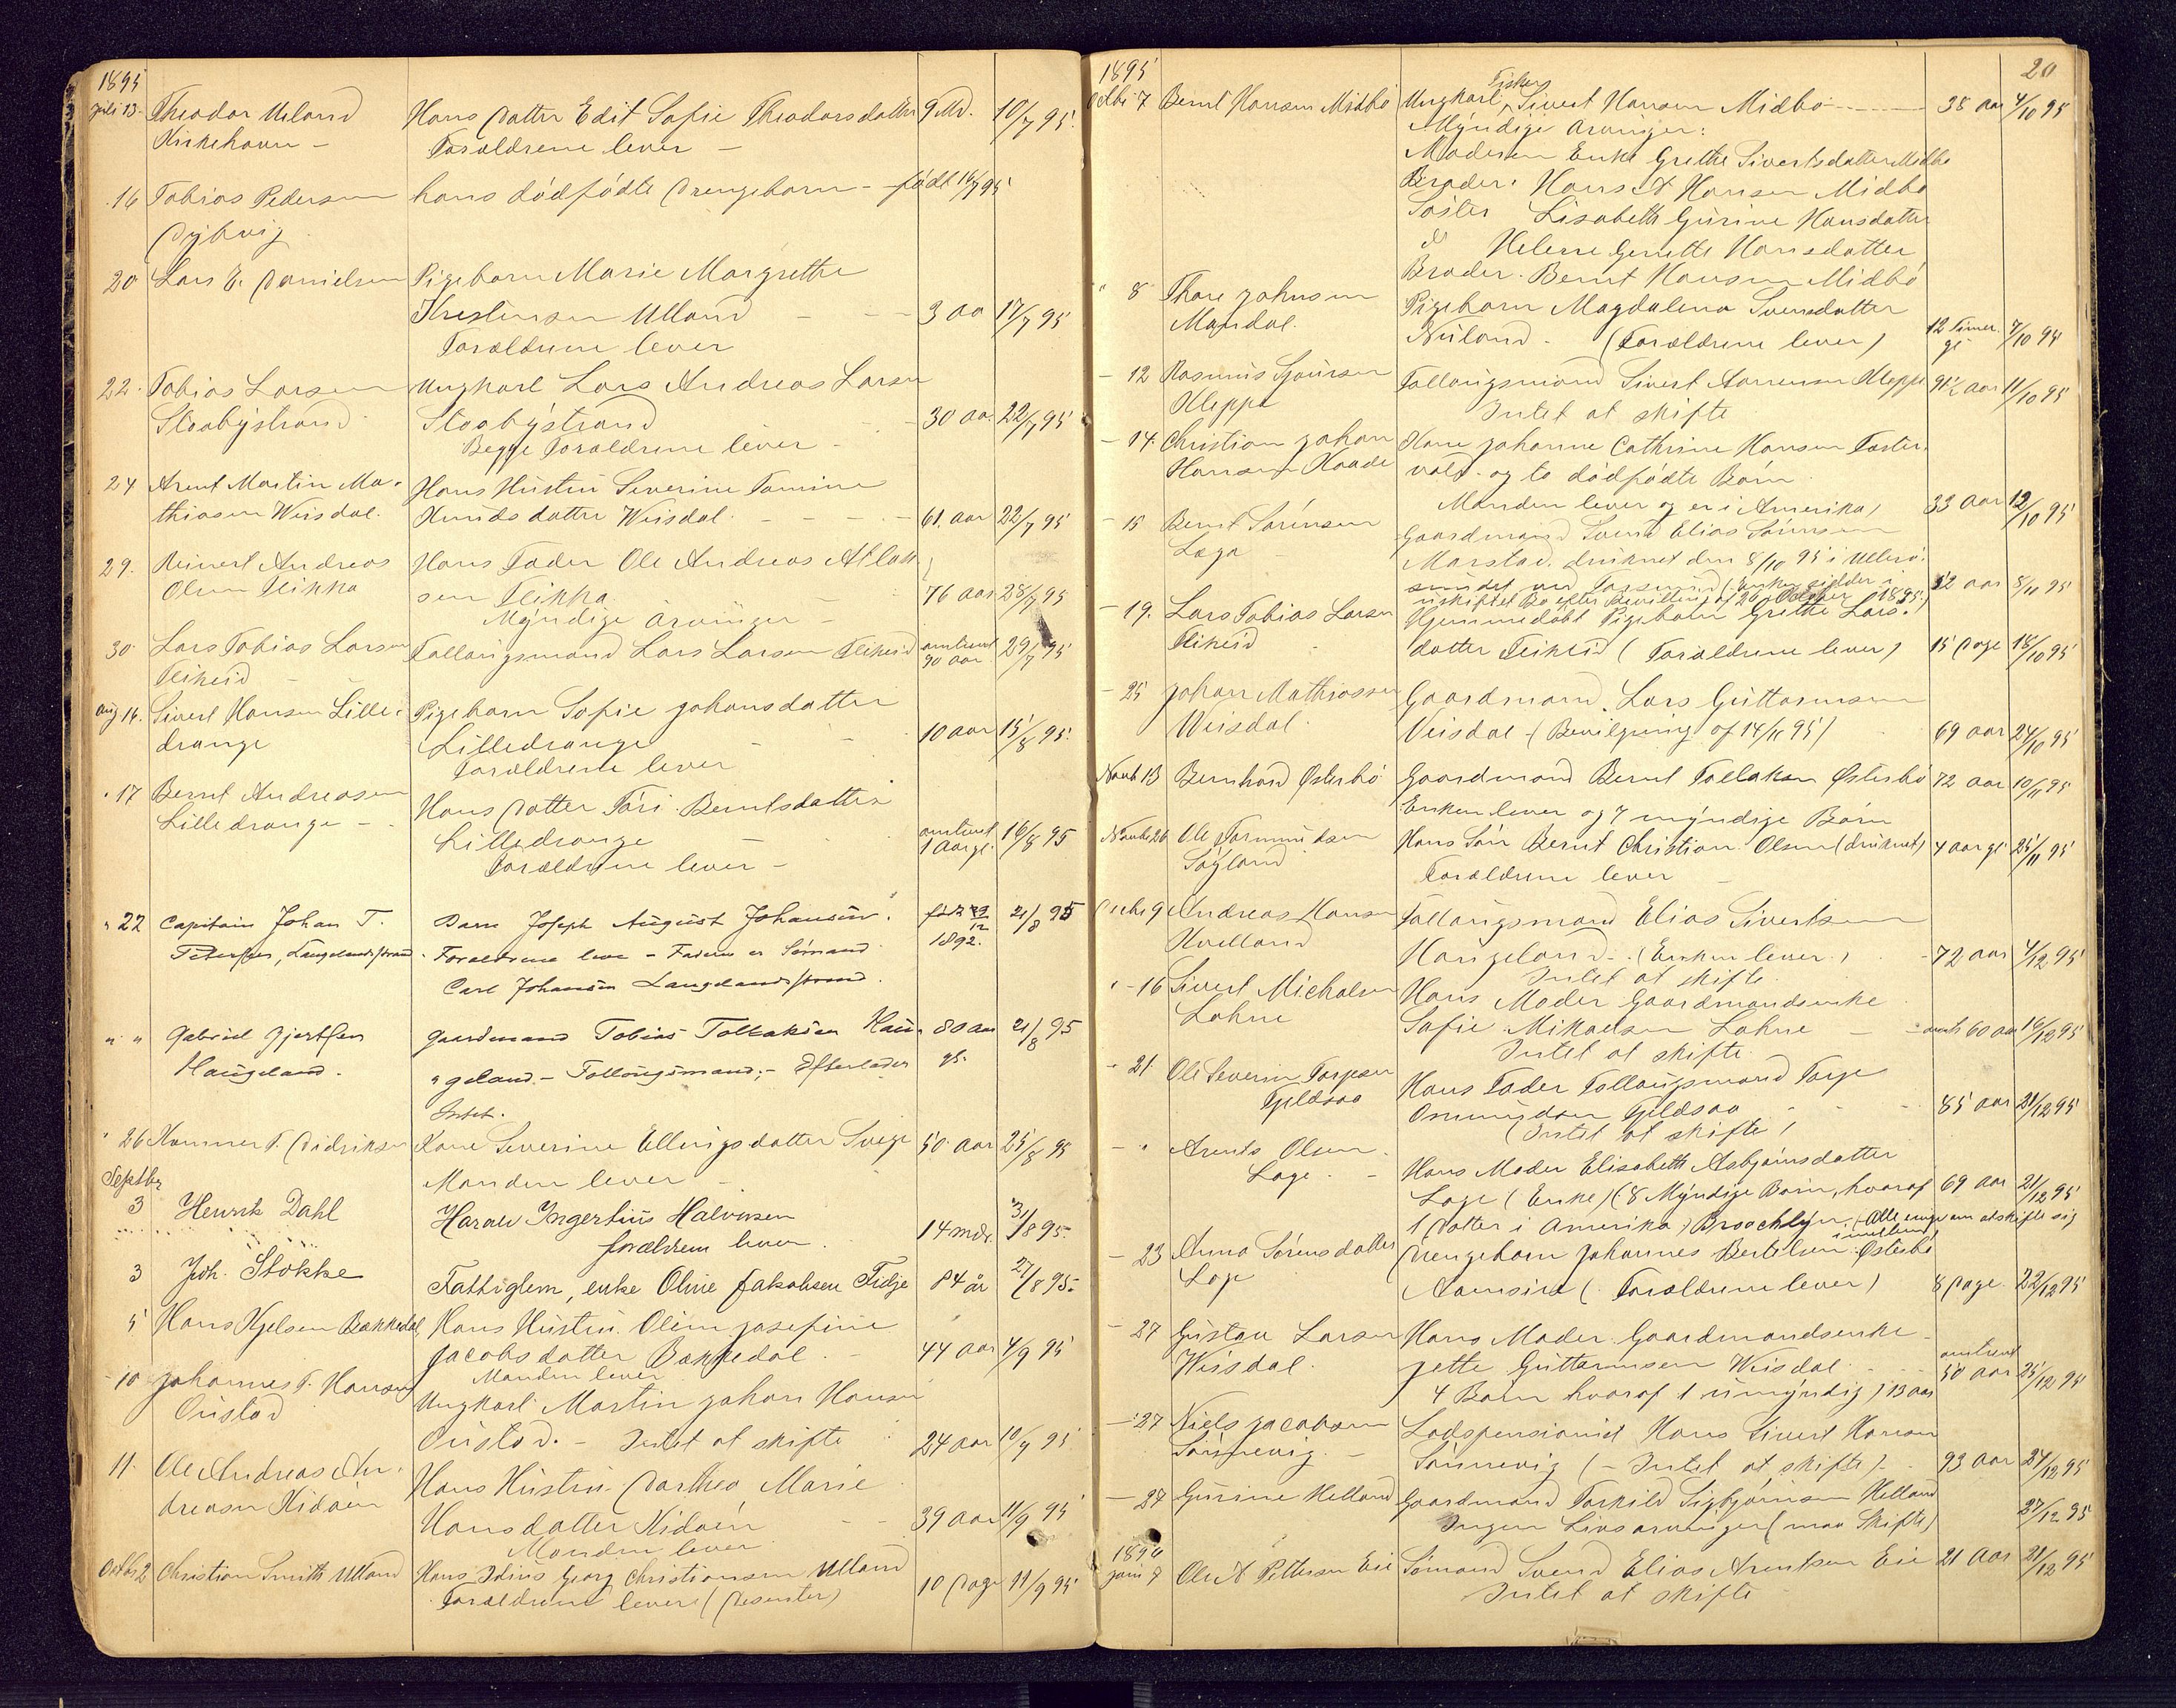 1895
Juli 13. Theodor Ueland Hans Datter Edit Sofie Theodorsdatter 9 Md. 10/7 95.
Kirkehavn - Forældrene lever -
16 Tobias Pedersen hans dödfödte Drengebarn - födt 16/7 95
Dybvig
20 Lars E. Danielsen Pigebarn Marie Margrethe
Kristensen Ulland - - 3 aa 17/7 95
Forældrene lever
22. Tobias Larsen Ungkarl Lars Andreas Larsen
Stoabystrand Stoabystrand - 30 aa. 22/7 95
Begge Forældrene lever -
24 Arent Martin Ma- Hans Hustru Severine Tomine
thiasen Veisdal. Knudsdatter Veisdal. - - - 61. aar 22/7 95
29. Reinert Andreas Hans Fader Ole Andreas Atlak
Olsen Flikka sen Flikka - 76 aar 28/7 95
Myndige Arvinger -
30 Lars Tobias Larsen Fallaugsmand Lars Larsen Flikeid omtrent 90 aar 29/7 95
Flikeid -
Aug 16. Sivert Hansen Lille- Pigebarn Sofie Johansdatter
drange Lilledrange - - 10 aar 15/8 95.
Forældrene lever
" 17 Bernt Andreasen Hans Datter Tóri Berntsdatter
Lilledrange - Lilledrange - omtrent 1 Aar gl. 16/8 95
Forældrene lever -
" 22 Capitain Johan T. Barn Joseph August Johansen. födt 29/12 1892. 21/8 95
Petersen, Langelandsstrand. Forældrene leve - Faderen er Sömand
Carl Johansen Langelandsstrand.
" " Gabriel Gjertsen Gaardmand Tobias Tollaksen Hau- 80 aar 21/8 95
Haugeland. geland. - Follaugsmand; - Efterlader gl.
Intet.
" 26 Hammer T. Didriksen Kone Severine Ellingsdatter Svege 50 aar 25/8 95
Manden lever -
Septbr
3 Henrik Dahl Harald Ingertius Halvorsen 14 mdr. 31/8 95.
forældren lever.
3 Joh. Stokke Fattiglem, enke Oline Jakobsen Tidje 84 år 27/8 95.
5 Hans Kjelsen Bakkedal Hans Hustru Oline Josefine
Jacobsdatter Bakkedal. - 44 aar 4/9 95
Manden lever
10 Johannes T. Hansen Ungkarl Martin Johan Hansen
Oustad Oustad. - Intet at skifte 24 aar 10/9 95
11. Ole Andreas An- Hans Hustru Dorthea Marie
dreasen Hidöen Hansdatter Hidöen - - 39 aar 11/9 95
Manden lever
Octbr 2 Christian Smith Ulland Hans Julius Georg Christiansen Ulland 10 Dage 11/9 95
Forældrene lever (Desenter)
20
1895
Octbr 7 Bernt Hansen Midbö Ungkarl, Fisker Sivert Hansen Midbö - 35 aar 4/10 95
Myndige Arvinger:
Moderen Enke Grethe Sivertsdatter Midbö
Broder. Hans A Hansen Midbö
Söster Lisabeth Gurine Hansdatter
do Helene Gurette Hansdatter
Broder. Bernt Hansen Midbö
" 8 Thore Johnsen Pigebarn Magdalena Svensdatter
Mandal. Nuland. (Forældrene lever) 12 Timer gl 7/10 95
- 12 Rasmus Sjursen Fallaugsmand Sivert Aanensen Kleppe 91½ aar 11/10 95
Kleppe Intet at skifte
- 14. Christian Johan Kone Johanne Cathrine Hansen Foster.
Hansen Haade vold. og to dödfödte Börn
Manden lever og er i Amerika) 33 aar 12/10 95
- 15 Bernt Sörensen Gaardmand Svend Elias Sörensen
Lega - Marstad. druknet den 8/10 95 i Ullerö-
sundet ved (Enken sidder i 52 aar 8/11 95
uskiftet Bo efter Bevilling af 26 October 1895.)
- 19. Lars Tobias Larsen Hjemmedöbt Pigebarn Grethe Lars-
Flikeid datter Flikeid (Forældrene lever) 15 Dage 18/10 95
- 25 Johan Mathiassen Gaardmand Lars Guttormsen
Veisdal. Veisdal (Bevilgning af 14/11 95) 69 aar 24/10 95
Novb 13 Bernhard Østerbö Gaardmand Bernt Tollaksen Østerbö 72 aar 10/11 95
Enken lever og 7 myndige Börn
Novbr 26 Ole Tormundsen Hans Sön Bernt Christian Olsen (druknet) 4 aar gl 25/11 95
Söyland Forældrene lever -
Decbr 9 Andreas Hansen Follaugsmand Elias Sivertsen
Kvelland Haugeland - (Enken lever.) - 72 aar 4/12 95
Intet at skifte
" - 16 Sivert Michalsen Hans Moder Gaardmandsenke
Lohne Sofie Mikaelsen Lohne - omtr 60 aar 16/12 95
Intet at skifte
- 21 Ole Severin Torgesen Hans Fader Follaugsmand Torge
Fjeldsaa Osmundsen Fjeldsaa - - 85 aar 21/12 95
(Intet at skifte)
- " Arents Olsen. Hans Moder Elisabeth Asbjörnsdatter
Lage. - Lage (Enke) (8 Myndige Börn, hvoraf 69 aar 21/12 95
1 Datter i Amerika) Broochlyn. (Alle enige om at skifte sig imellem)
- 23 Anna Sörensdatter Drengebarn Johannes Bertelsen Österbö
Lage Aamsira (Forældrene lever) 8 Dage. 22/12 95
- 27 Gustav Larsen Hans Moder. Gaardmandsenke
Veisdal. Jette Guttormsen Veisdal. omtrent 50 aar 25/12 95
4 Börn hvoraf 1 umyndig) 13 aar
- 27 Niels Jacobsen Lodspensionist Hans Sivert Hansen
Sönnevig. - Sönnevig (- Intet at skifte) - 93 aar 24/12 95
- 27 Gurine Helland Gaardmand Torkild Sigbjörnsen Helland
Ingen Livsarvinger (maa Skifte) 27/12 95
1896
Jan 7 Ole A Pettersen Eie Sömand Svend Elias Arentsen Eie 21 aar 21/12 95
Intet at skifte